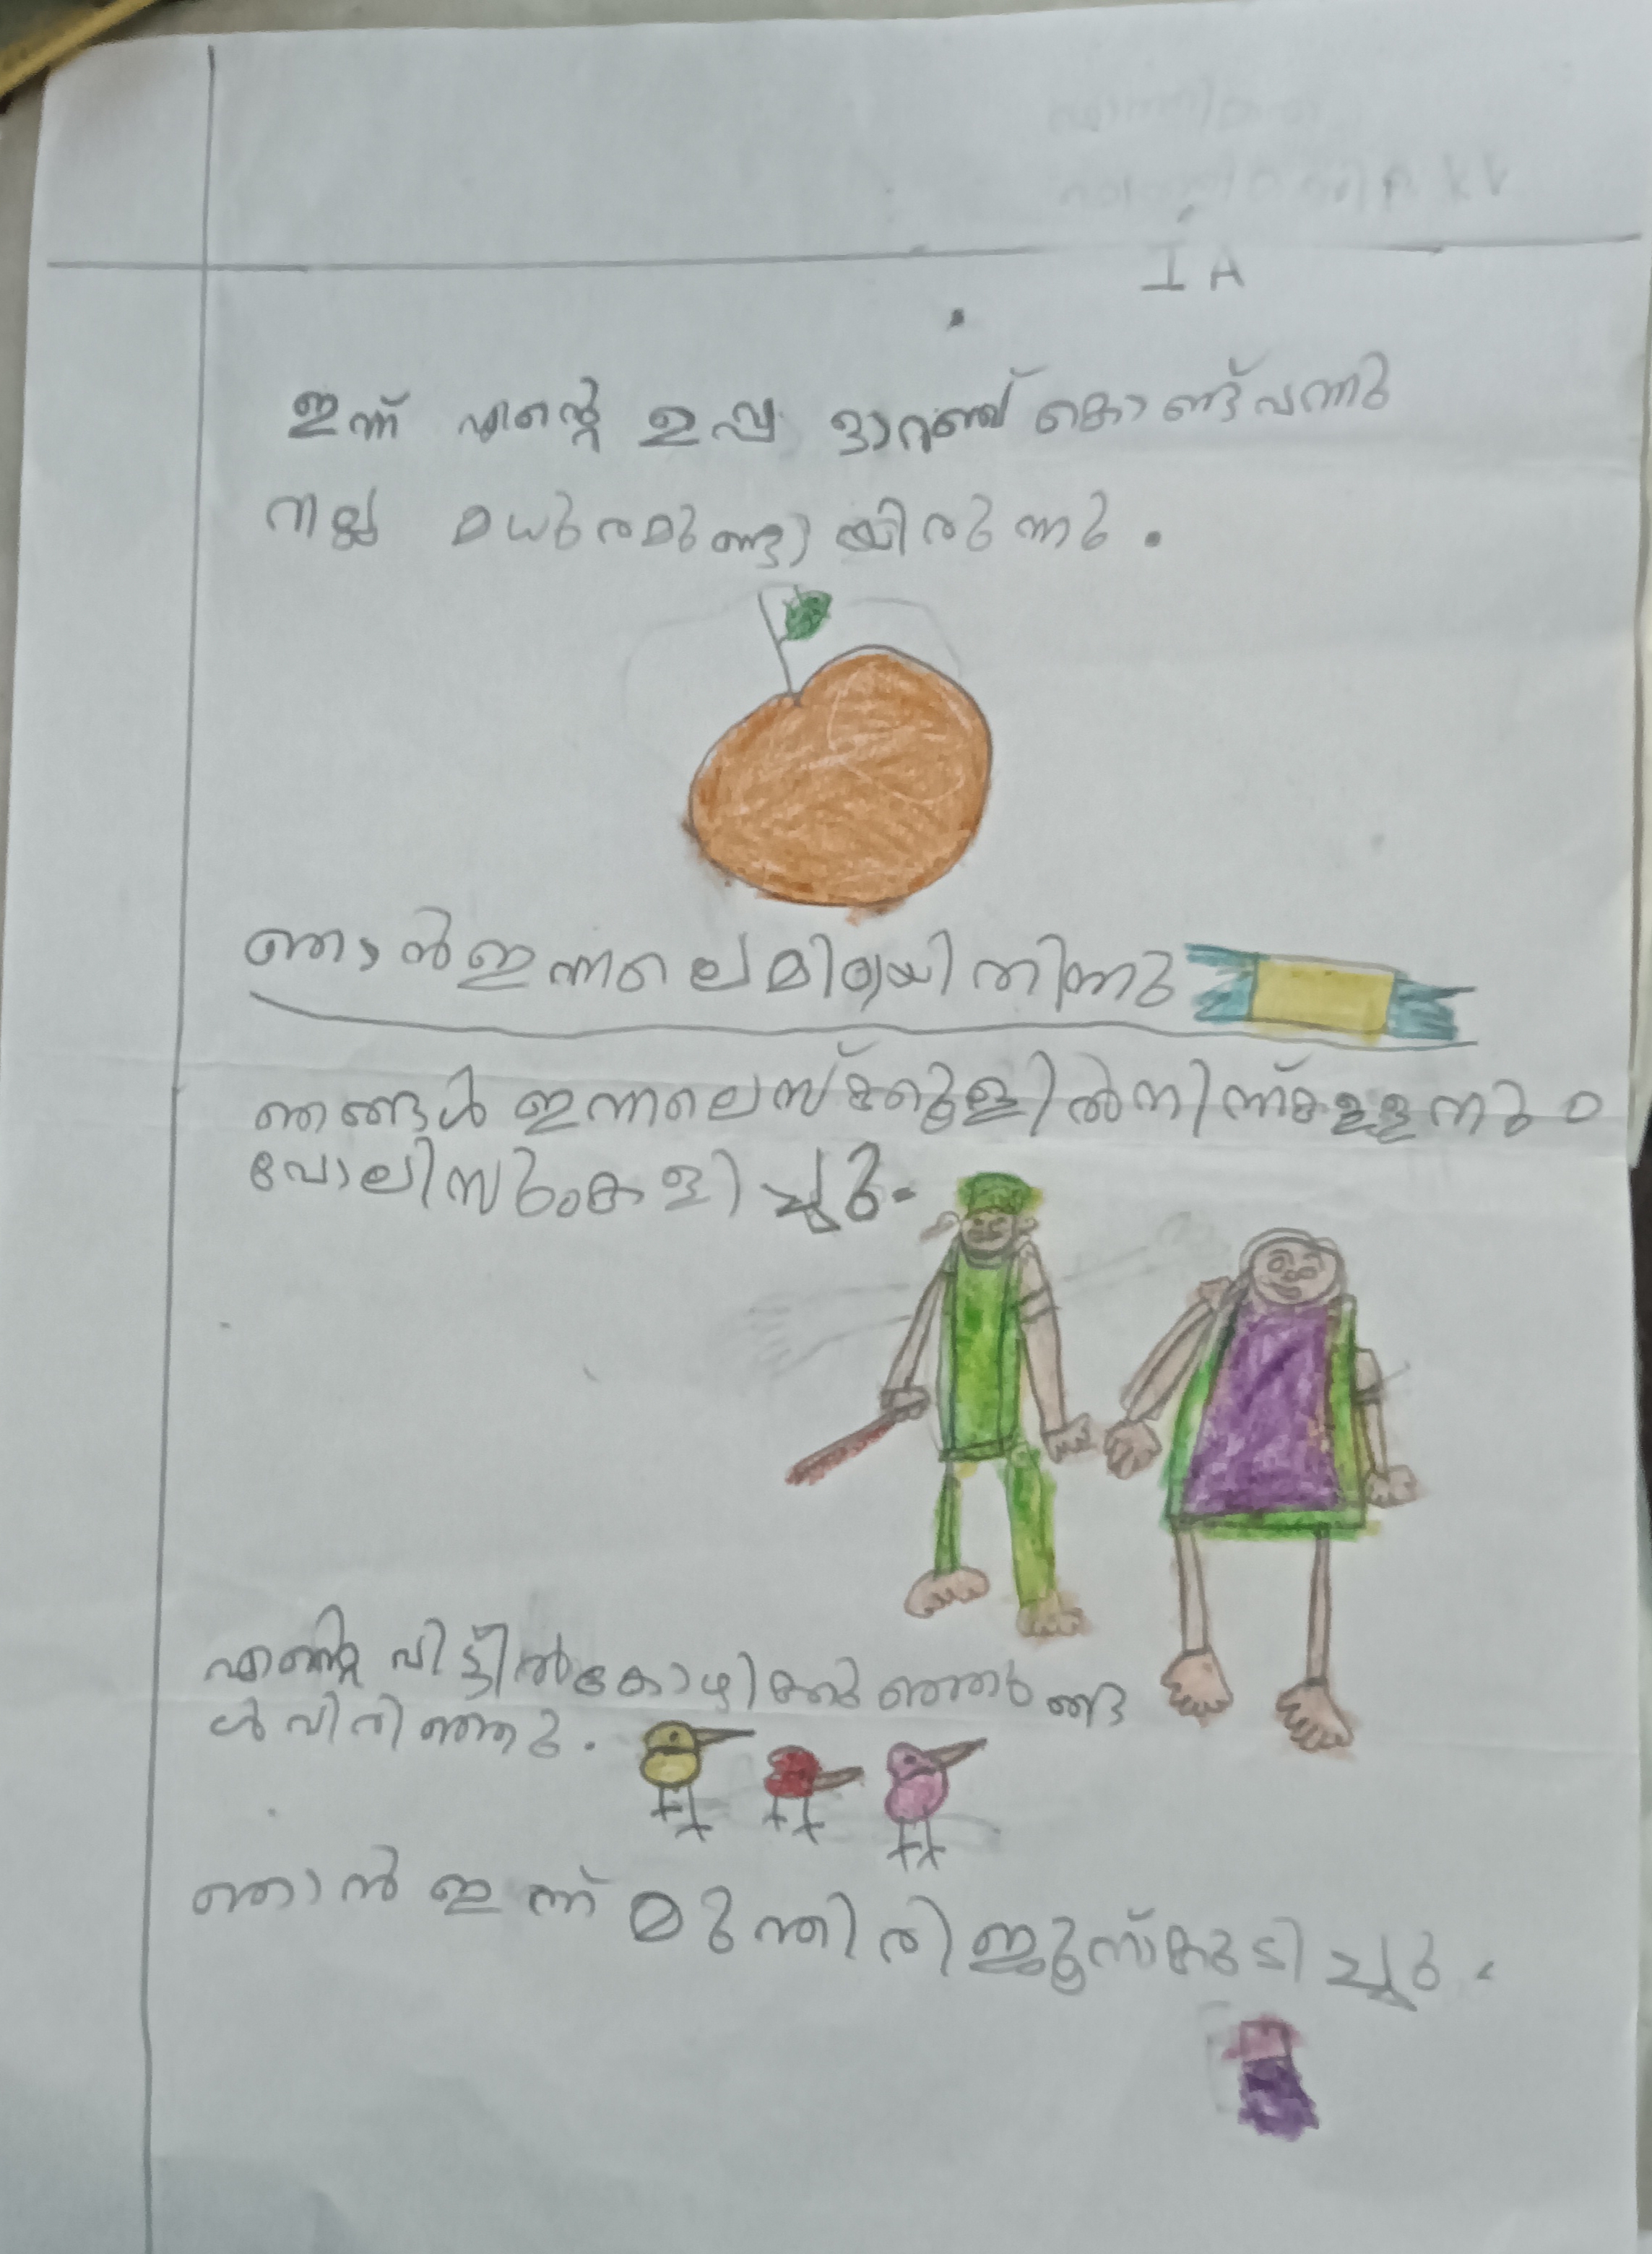 I A
ഇന്ന് എന്റെ ഉപ്പ ഓറഞ്ച് കൊണ്ട് വന്നു
നല്ല മധുരമുണ്ടായിരുന്നു.
ഞാൻ ഇന്നലെ മിഠായി തിന്നു
ഞങ്ങൾ ഇന്നലെ സ്കൂളിൽ നിന്ന് കള്ളനും
പോലിസും കളിച്ചു.
എന്റെ വീട്ടിൽ കോഴിക്കുഞ്ഞുങ്ങ
ൾ വിരിഞ്ഞു.
ഞാൻ ഇന്ന് മുന്തിരി ജ്യൂസ് കുടിച്ചു.